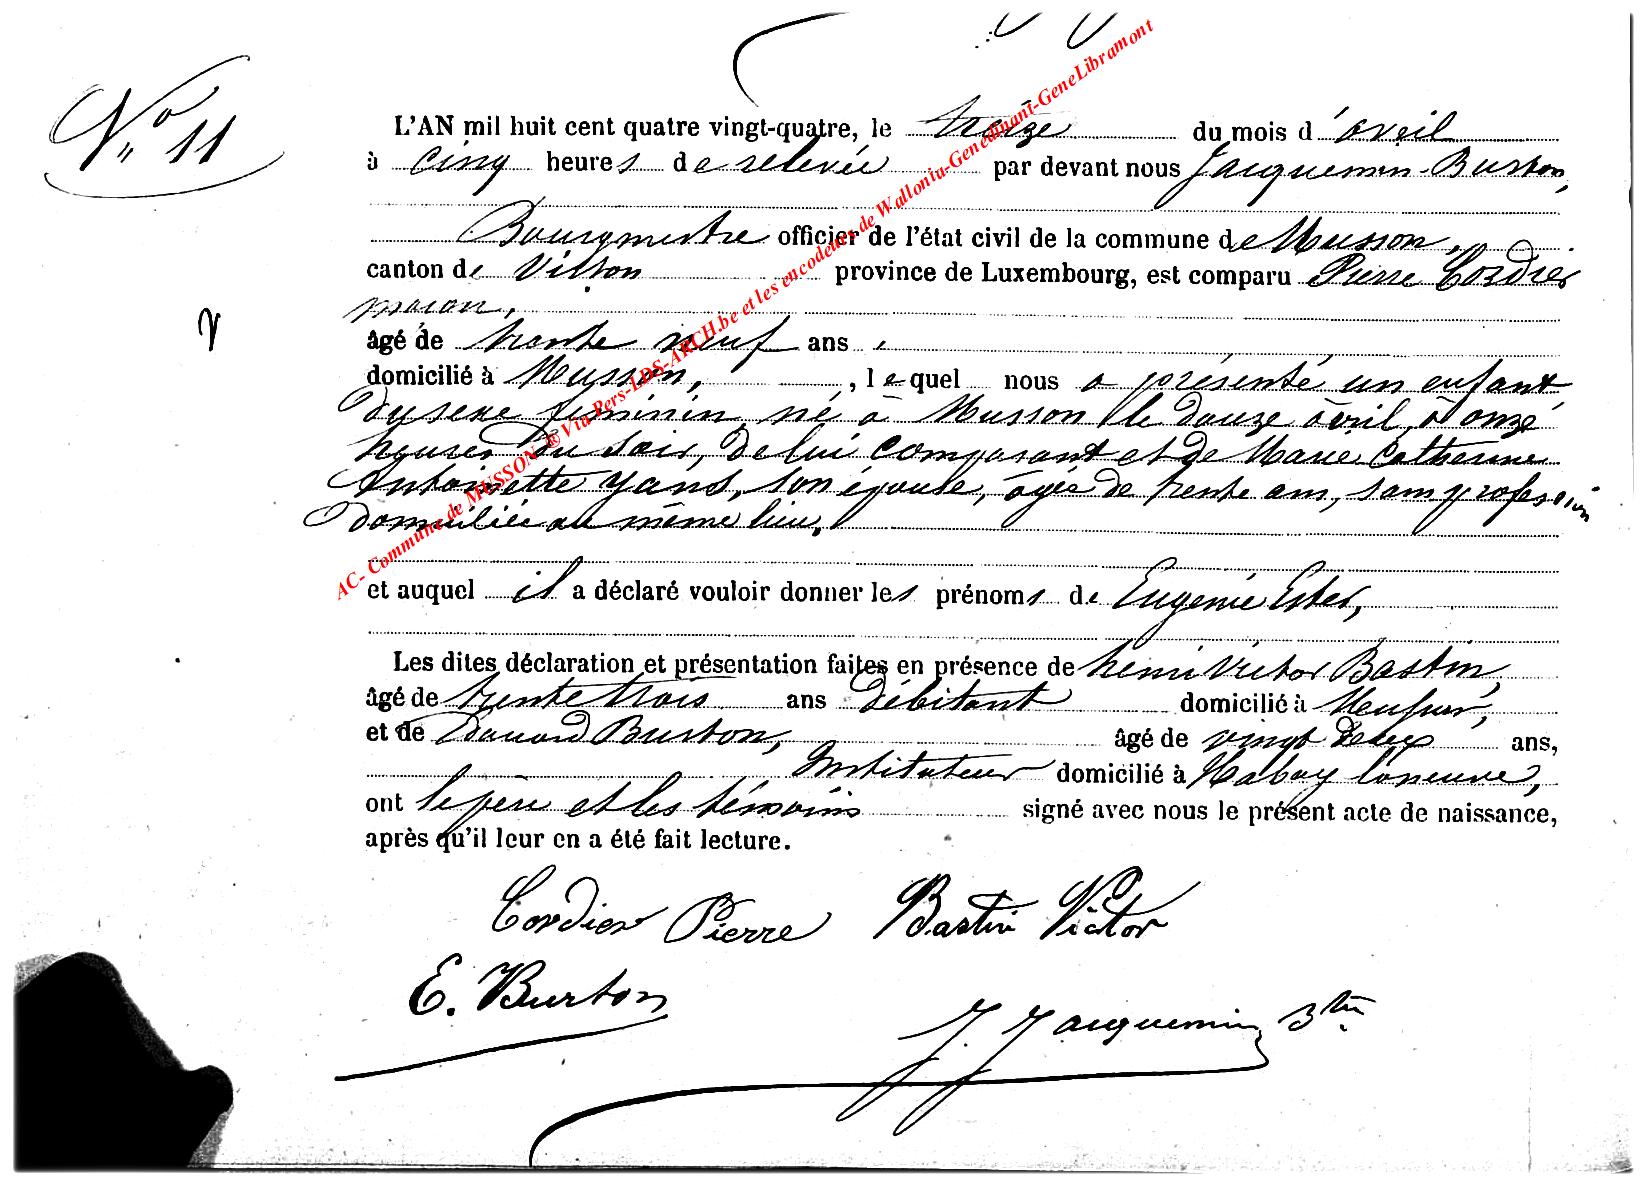 N° 11
L'AN mil huit cent quatre vingt-quatre, le treize du mois d'avril
à cinq heures de relevée par devant nous Jacquemin-Burton,
Bourgmestre officier de l'état civil de la commune de Musson,
canton de Virton province de Luxembourg, est comparu Pierre Cordier
maçon,
âgé de trente neuf ans,
domicilié à Musson, , lequel nous a présenté un enfant
du sexe feminin né à Musson le douze avril, à onze
heures du soir, de lui comparant et de Marie Catherine
Antoinette Yans, son épouse, âgée de trente ans, sans profession
domiciliée au même lieu.
et auquel il a déclaré vouloir donner les prénoms de Eugénie Ester,
Les dites déclaration et présentation faites en présence de henri Victor Bastin,
âgé de trente trois ans débitant domicilié à Musson,
et de Edouard Burton, âgé de vingt deux ans,
Instituteur domicilié à Habay laneuve,
ont le père et les témoins signé avec nous le présent acte de naissance,
après qu'il leur en a été fait lecture.
Cordier Pierre Bastin Victor
E. Burton
J. Jacquemin Btn
AC- Commune de MUSSON ® Via Pers-LDS-ARCH.be et les encodeurs de Wallonia-Genedinant-GeneLibramont